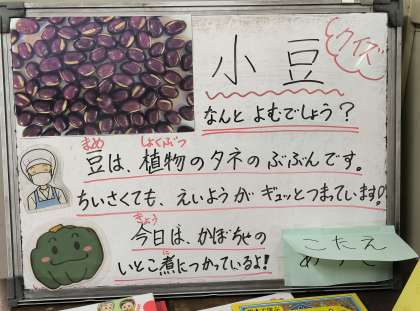 クイズ
小豆
なんと よむでしょう？
まめ しょくぶつ
豆は、植物のタネのぶぶんです。
ちいさくても、えいようが ギュッとつまっています!
きょう
今日は、かぼちゃの
に
いとこ煮につかっているよ!
こたえ